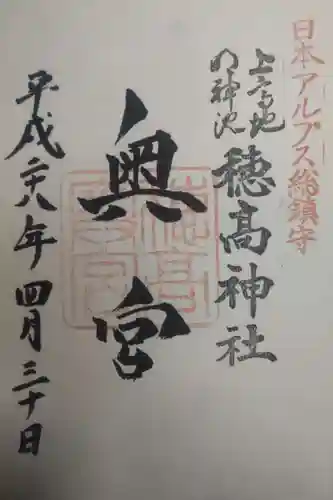 日本アルプス総鎮守
上高地
明神池
穂高神社
奥宮
平成二十八年四月三十日